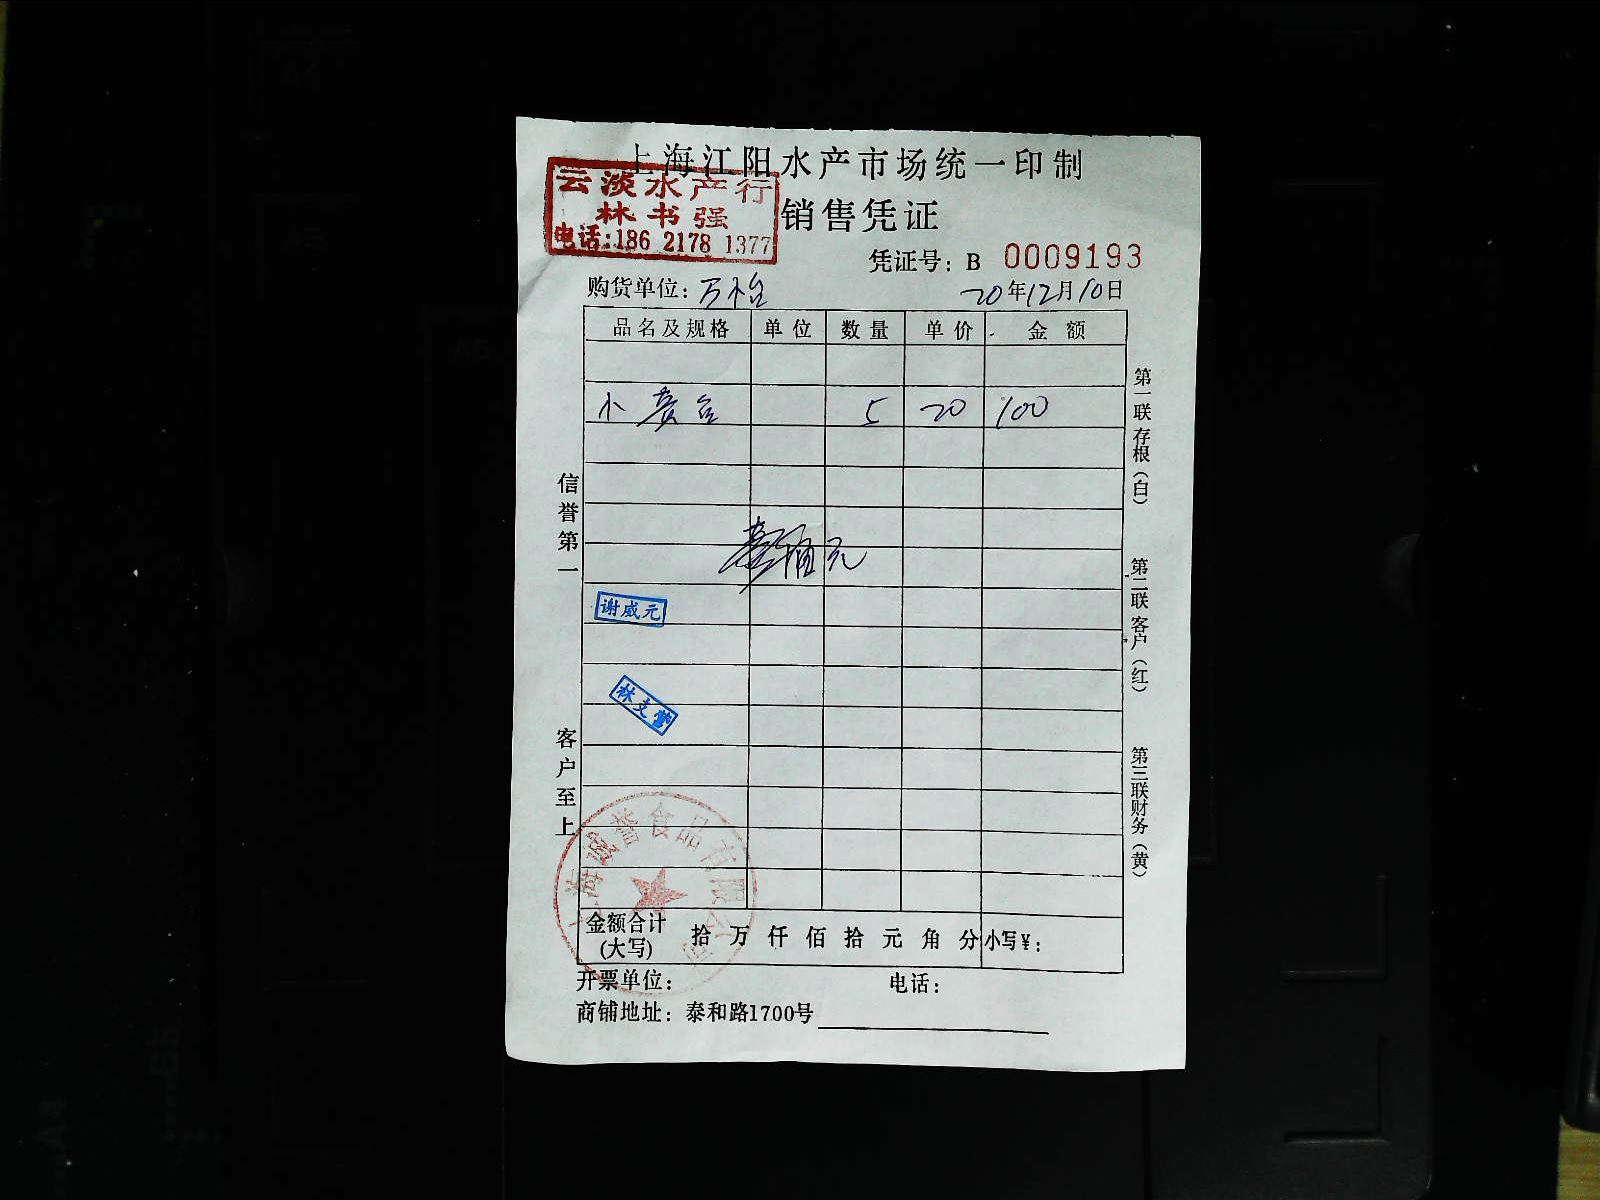 上海江阳水产市场统一印制
云淡水产行
林书强
电话:186 2178 1377
销售凭证
凭证号: B 0009193
购货单位: 万裕
20年12月10日
品名及规格 单位 数量 单价 金额
小黄鱼 5 20 100
壹佰元
谢威元
林支营
信誉第一
客户至上
第一联 存根(白)
第二联 客户(红)
第三联 财务(黄)
上海诚誉食品有限公司
金额合计(大写) 拾 万 仟 佰 拾 元 角 分 小写¥:
开票单位: 电话:
商铺地址: 泰和路1700号